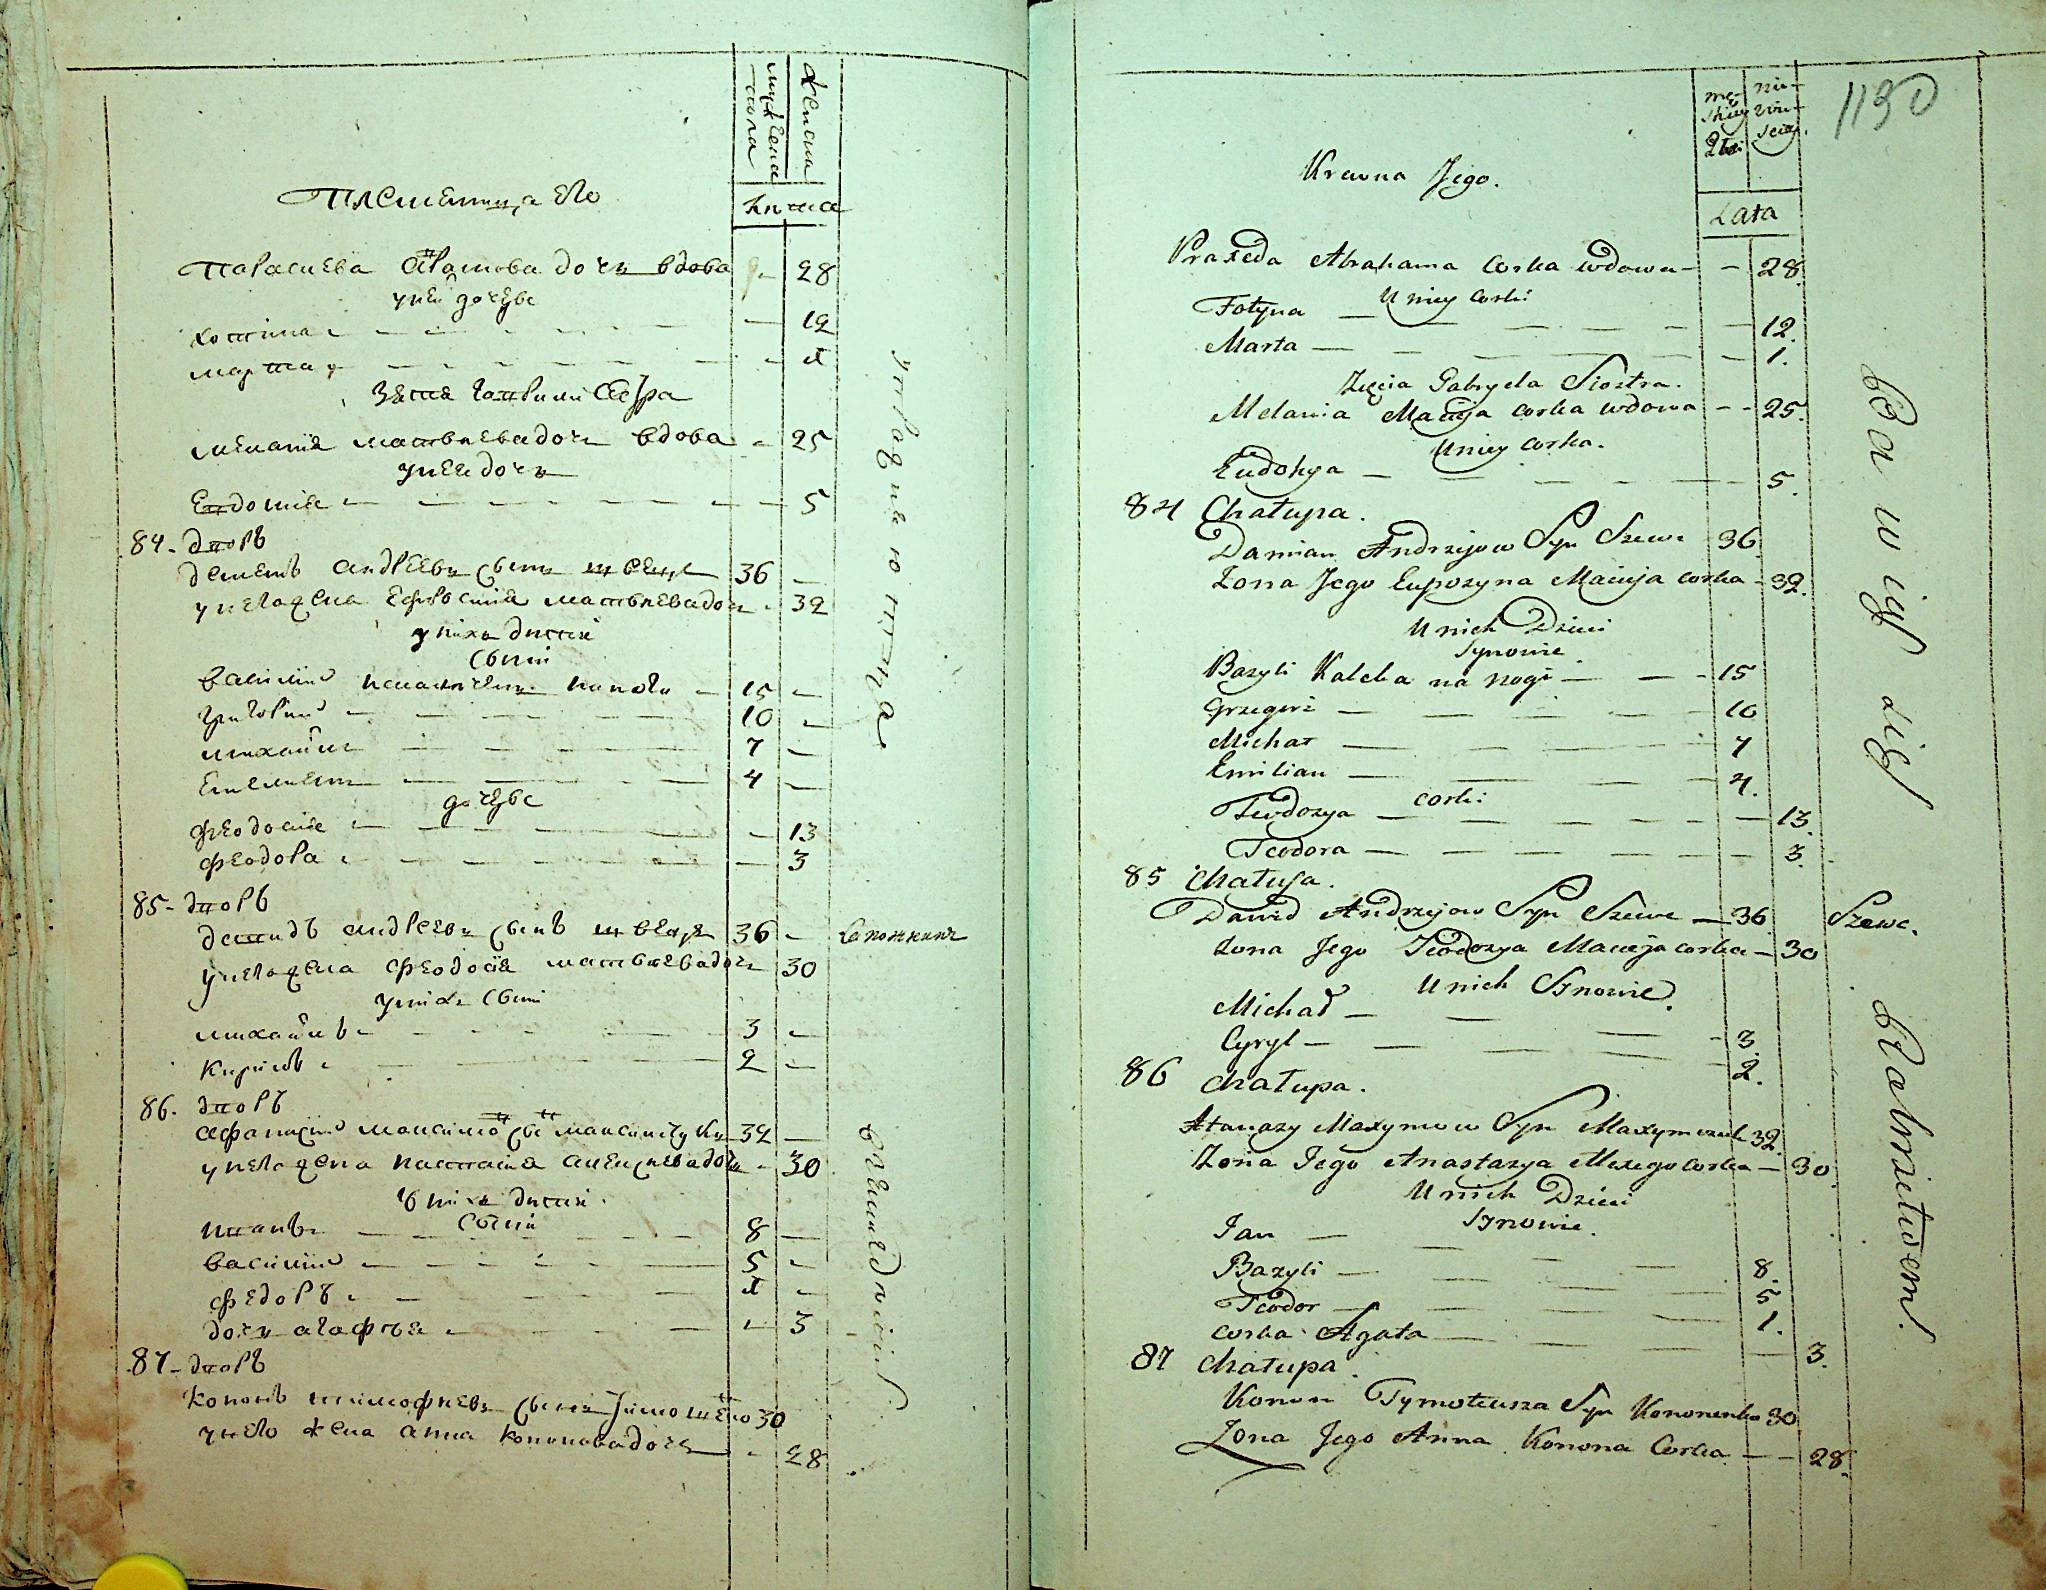 мужеска пола
женска
Племенница его
лѣта
Параскева Аврамова дочь вдова - 28
у неи дочерѣ
Фотиния - 12
Марта - 1
Зятя Гавриила сестра
Мелания Матвеева дочь вдова - 25
у неи дочь
Евдокия - 5
84. дворъ
Демянъ Андреевъ сынъ швецъ 36 -
у него жена Ефросиния Матвеева дочь - 32
у нихъ дити
сыни
Василий калѣка на ноги - 15 -
Григорий - 10 -
Михаилъ - 7 -
Емелиянъ - 4 -
дочерѣ
Феодосия - 13
Феодора - 3
85. дворъ
Давидъ Андреевъ сынъ швецъ 36 - Сапожникъ
у него жена Феодосия Матвеева дочь 30
у нихъ сыни
Михаилъ - 3 -
Кирилъ - 2 -
86. дворъ
Афанасий Максимовъ сынъ Максимчукъ 32 -
у него жена Настасия Алексеева дочь - 30
у нихъ дити
сыни
Иванъ - 8 -
Василий - 5 -
Федоръ - 1 -
дочь Агафия - 3
87. дворъ
Кононъ Тимофеевъ сынъ 30
у него жена Анна Кононова дочь - 28
земледелиемъ
1130
męskiey Płci
niewiesciey
Krewna Jego.
Lata
Praxeda Abrahama Corka wdowa - 28.
U niey Corki
Fotyna - 12.
Marta - 1.
Zięcia Gabryela Siostra.
Melania Macieja corka wdowa - 25.
U niey corka.
Eudokya - 5.
84 Chałupa.
Damian Andrzejow Syn Szewc 36
Zona Jego Euprozyna Macieja corka - 32.
U nich Dzieci
Synowie
Bazyli Kaleka na nogi - 15
Grzegorz - 10
Michał - 7
Emilian - 4.
corki
Teodozya - 13.
Teodora - 3.
85 Chałupa.
Dawid Andrzejow Syn Szewc - 36 Szewc.
Zona Jego Teodozya Macieja corka - 30
U nich Synowie.
Michał - 3.
Cyryl - 2.
86 Chałupa.
Atanazy Maxymow Syn Maxymczuk 32.
Zona Jego Anastazya Alexego corka - 30.
U nich Dzieci
Synowie.
Jan - 8.
Bazyli - 5
Teodor - 1.
corka Agata - 3.
87 Chałupa.
Konon Tymoteusza Syn Kononenko 30
Zona Jego Anna Konona Corka - 28.
Bawię się